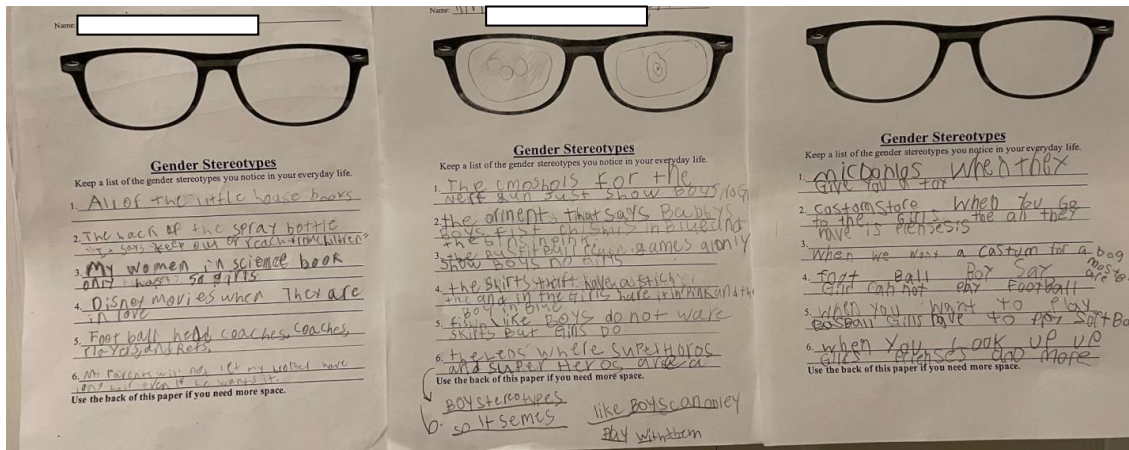 Name:
Gender Stereotypes
Keep a list of the gender stereotypes you notice in your everyday life.
1. All of the little house books
2. The back of the spray bottle
it says "keep out of reach from children"
3. My women in science book
only has 50 girls
4. Disney movies when They are
in love
5. Foot ball head coaches, coaches,
Players, and Refs.
6. My Parents will not let my brother have
long hair even if he wants it.
Use the back of this paper if you need more space.
Name:
Gender Stereotypes
Keep a list of the gender stereotypes you notice in your everyday life.
1. The cmoshols for the
nerf gun Just show Boys, no Gi
2. the orment that says Babbys
Boys fist chismis in Blue and
the Girls in Pink
3. games a only
show Boys no Girls
4. the shirts
the and in the Girls have it in Pink and the
Boy in Blue
5. like Boys do not ware
skirts But Girls Do
6. the Legs where SuperHoros
and super Heros are a
Use the back of this paper if you need more space.
6. Boy stereotypes
so it semes
like Boys can onley
Play with them
Gender Stereotypes
Keep a list of the gender stereotypes you notice in your everyday life.
1. micDonlos When they
Give You a toy
2. castomStore When You Go
to the Girls the all they
have is Prensesis
3.
When we want a castum for a bog
4. foot Ball Boy Say
Girls can not Play Football
5. when You want to Play
BasBall Girls have to Play SoftBa
6. when You Look up
Girls Prenses and more
Use the back of this paper if you need more space.